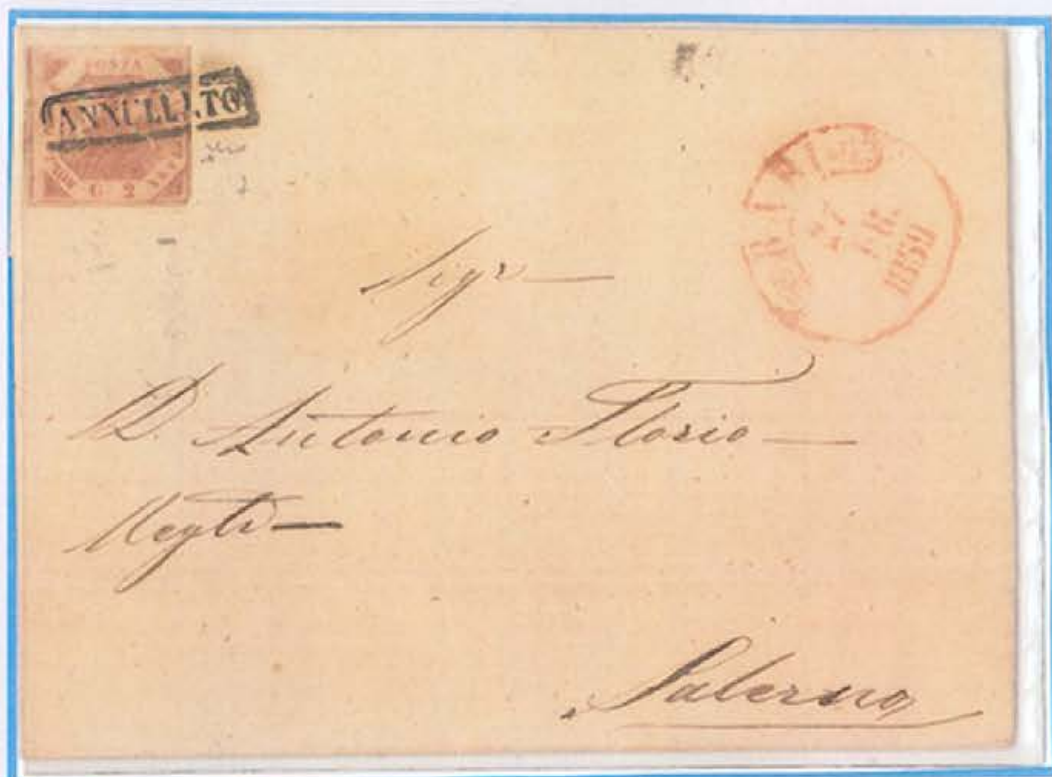 POSTA
ANNULLATO
G 2
BARI
27
Sigr
D. Antonio Florio
Negte
Salerno